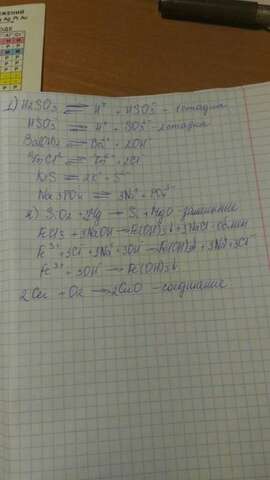 1) H2SO3 ⇌ H⁺ + HSO3⁻ - 1 стадия
HSO3⁻ ⇌ H⁺ + SO3²⁻ - 2 стадия
Ba(OH)2 ⇌ Ba²⁺ + 2OH⁻
⇌ + 2Cl⁻
K2S ⇌ 2K⁺ + S²⁻
Na3PO4 ⇌ 3Na⁺ + PO4³⁻
2) SiO2 + Mg → Si + MgO замещение
FeCl3 + 3NaOH → Fe(OH)3↓ + 3NaCl - обмен
Fe³⁺ + 3Cl⁻ + 3Na⁺ + 3OH⁻ → Fe(OH)3↓ + 3Na⁺ + 3Cl⁻
Fe³⁺ + 3OH⁻ → Fe(OH)3↓
2Cu + O2 → 2CuO - соединение